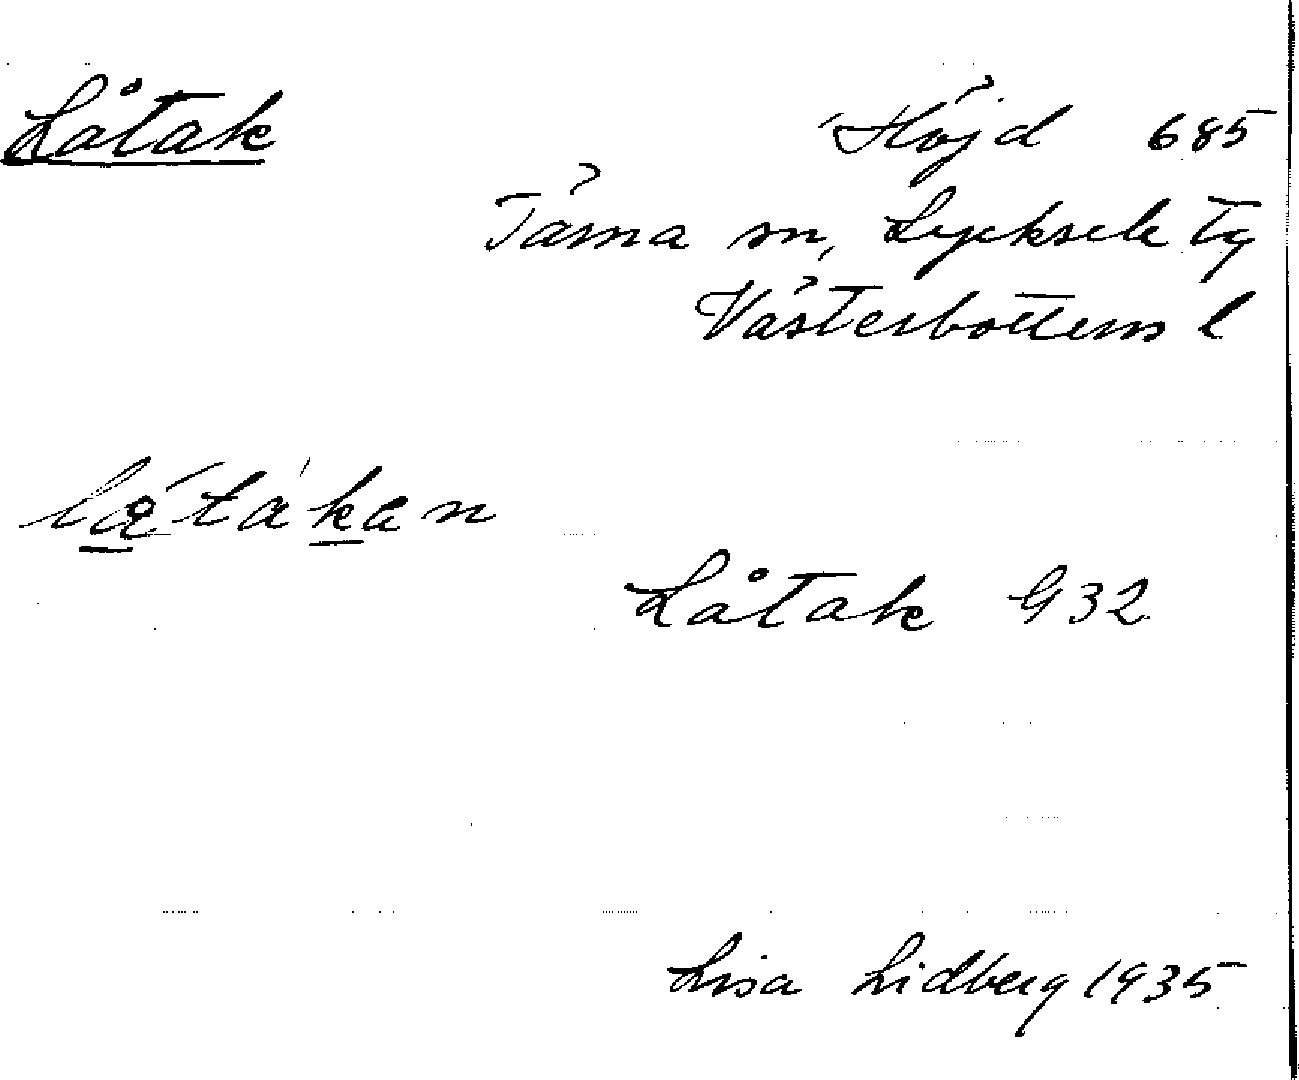 Låtak Höjd 685
Tärna sn, Lycksele tg
Västerbottens l
lą́takan
Låtak G32
Lisa Lidberg 1935